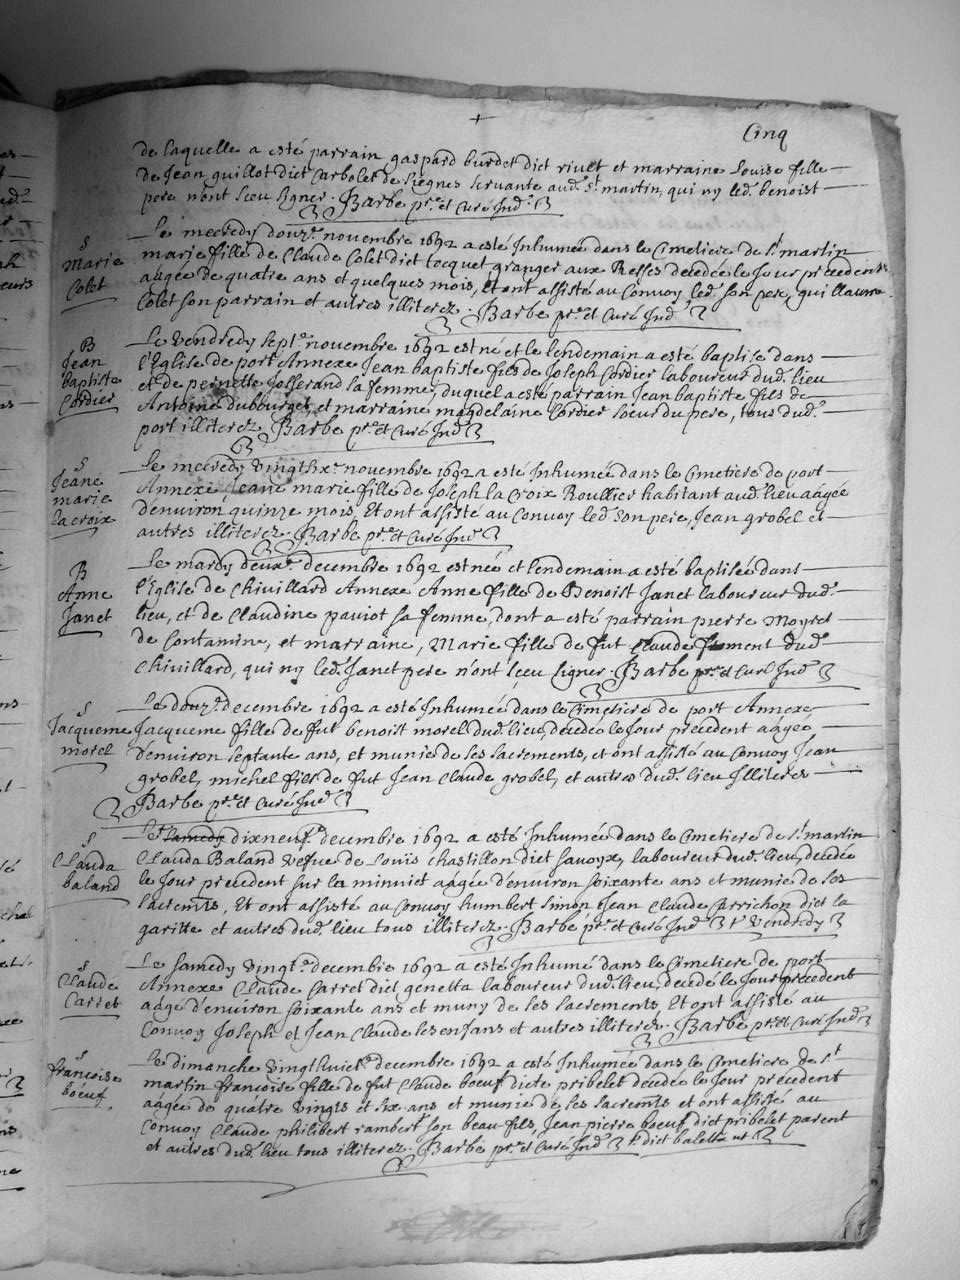 Cinq
de laquelle a esté parrain gaspard burdet dict rivlt et marraine Louise fille
de Jean guillot dict Carbolet de siegnes servante aud. st. martin, qui ny led. benoist
pere n'ont sceu signer. Barbe ptre. et Curé Susd.
S Marie Colet
Le mecredy douze. novembre 1692 a esté Inhumée dans le Cimetiere de st. martin
marie fille de Claude Colet dict tocquet granger aux Resses decedée le Jour precedent
aagée de quatre ans et quelques mois, Et ont assisté au Convoy led. son pere, guillaume
Colet son parrain et autres illiterez. Barbe ptre. et Curé Susd.
B Jean baptiste Cordier
Le vendredy sept.e novembre 1692 est né et le lendemain a esté baptisé dans
l'Eglise de port Annexe Jean baptiste fils de Joseph Cordier laboureur dud. lieu
et de pernette Josserand sa femme, duquel a esté parrain Jean baptiste fils de
Antoine dubourget et marraine magdelaine Cordier soeur du pere, tous dud.
port illiterez. Barbe ptre. et Curé Susd.
S Jeane marie la croix
Le mecredy vingt six.e novembre 1692 a esté Inhumée dans le Cimetiere de port
Annexe Jeane marie fille de Joseph la Croix Roullier habitant aud. lieu aagée
d'environ quinze mois, Et ont assisté au Convoy led. son pere, Jean grobel et
autres illiterez. Barbe ptre. et Curé Susd.
B Anne Janet
Le mardy deux.e decembre 1692 est née et lendemain a esté baptisée dans
l'Eglise de Chivillard Annexe Anne fille de Benoist Janet laboureur dud.
lieu, et de Claudine paviot sa femme, dont a esté parrain pierre Moyret
de Contamine, et marraine, Marie fille de fut Claude froment dud.
Chivillard, qui ny led. Janet pere n'ont sceu signer. Barbe ptre. et Curé Susd.
S Jacqueme morel
Le douz.e decembre 1692 a esté Inhumée dans le Cimetiere de port Annexe
Jacqueme fille de fut benoist morel dud. lieu, decedée le Jour precedent aagée
d'environ septante ans, et munie de ses sacrements, et ont assisté au Convoy Jean
grobel, michel fils de fut Jean Claude grobel, et autres dud. lieu Illiteres
Barbe ptre. et Curé Susd.
S Clauda baland
Le samedy dixneuf.e decembre 1692 a esté Inhumée dans le Cimetiere de st. martin
Clauda Baland vefve de Louis Chastillon dict savoye, laboureur dud. lieu, decedée
le Jour precedent sur la minuict aagée d'environ soixante ans et munie de ses
sacremts, Et ont assisté au Convoy humbert simon Jean Claude Carrichon dict la
garitte et autres dud. lieu tous illiterez. Barbe ptre. et Curé Susd. vendredy
S Claude Carret
Le samedy vingt.e decembre 1692 a esté Inhumé dans le Cimetiere de port
Annexe Claude Carret dict genetta laboureur dud. lieu, decedé le Jour precedent
aagé d'environ soixante ans et muny de ses sacrements, Et ont assisté au
Convoy Joseph et Jean Claude ses enfans et autres illiterez. Barbe ptre. et Curé Susd.
S francoise boeuf
Le dimanche vingthuict.e decembre 1692 a esté Inhumée dans le Cimetiere de st.
martin francoise fille de fut Claude boeuf dicte pribelet decedée le Jour precedent
aagée de quatre vingts et six ans et munie de ses sacremts et ont assisté au
Convoy Claude philibert rambert son beau fils, Jean pierre boeuf dict pribelet parent
et autres dud. lieu tous illiterez. Barbe ptre. et Curé Susd. dict baletta